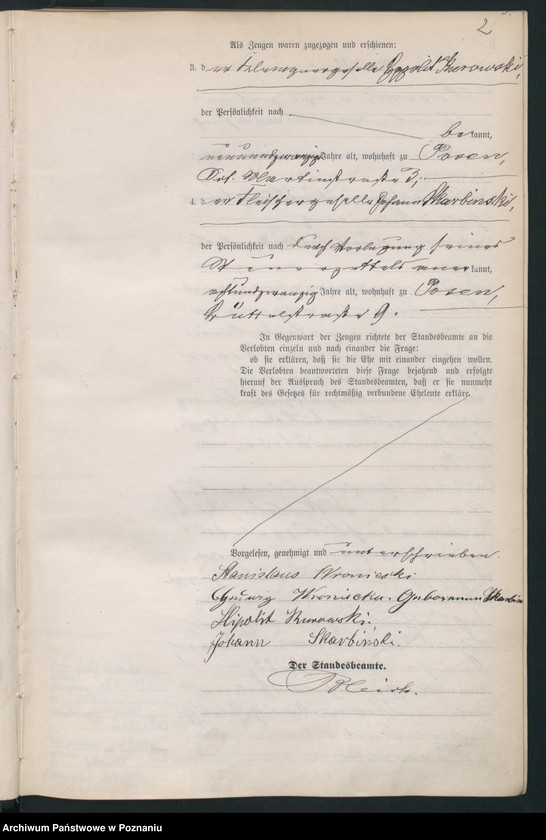 2
Als Zeugen waren zugezogen und erschienen:
3. der Hippolit Kurowski,
der Persönlichkeit nach
bekannt,
neunundzwanzig Jahre alt, wohnhaft zu Posen,
Sct. Martinstraße 3;
4. der Fleischergeselle Johann Skarbinski,
der Persönlichkeit nach durch Vorlegung seines
Steuerzettels anerkannt,
achtundzwanzig Jahre alt, wohnhaft zu Posen,
Büttelstraße 9.
In Gegenwart der Zeugen richtete der Standesbeamte an die
Verlobten einzeln und nach einander die Frage:
ob sie erklären, daß sie die Ehe mit einander eingehen wollen.
Die Verlobten beantworteten diese Frage bejahend und erfolgte
hierauf der Ausspruch des Standesbeamten, daß er sie nunmehr
kraft des Gesetzes für rechtmäßig verbundene Eheleute erkläre.
Vorgelesen, genehmigt und unterschrieben.
Stanislaus Wroniecki
Wroniecka. Skarbin
Hipolit Kurowski.
Johann Skarbiński.
Der Standesbeamte.
Bleich.
Archiwum Państwowe w Poznaniu